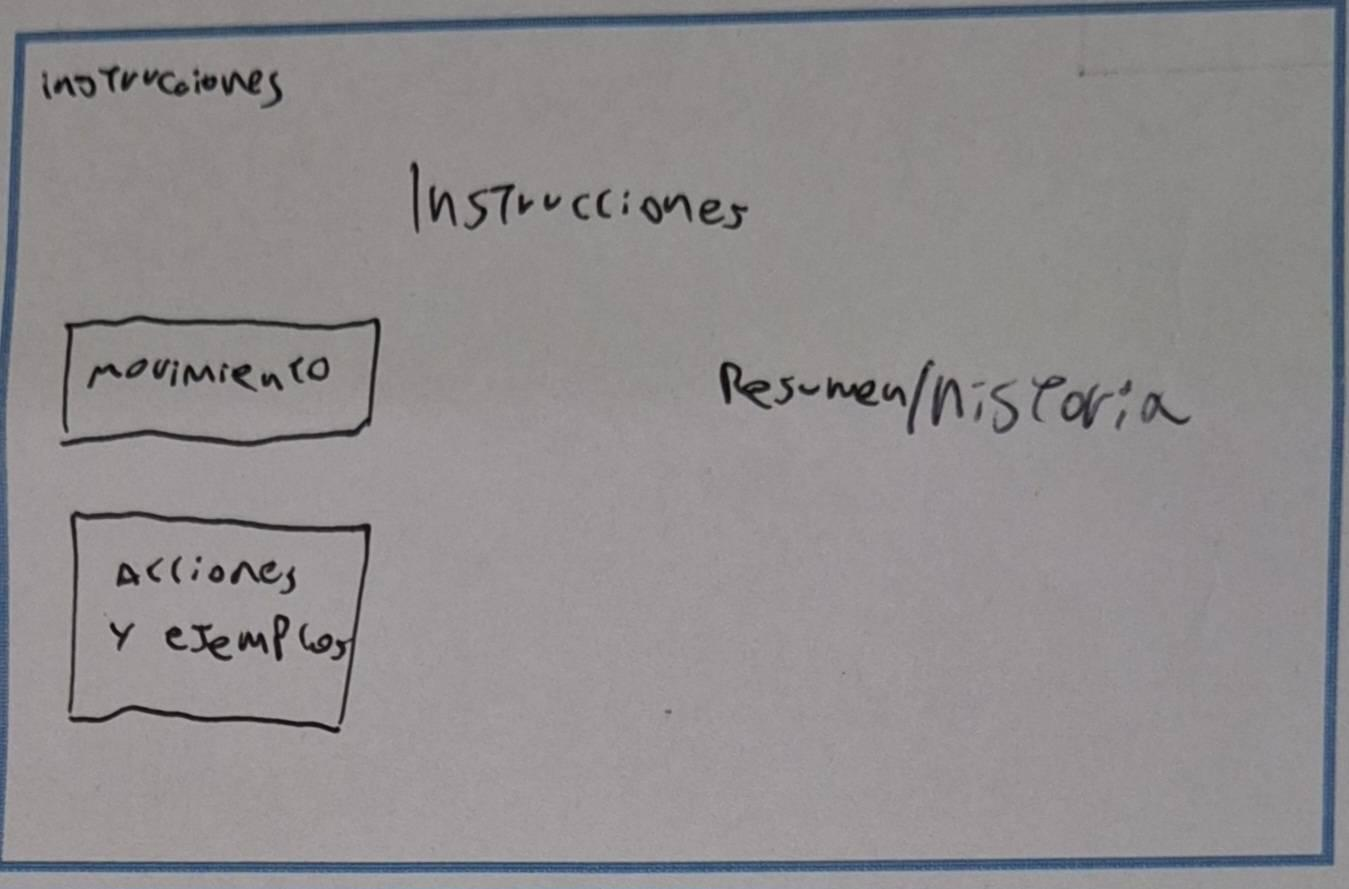 instrucciones
Instrucciones
movimiento
Resumen/historia
Acciones
y ejemplos